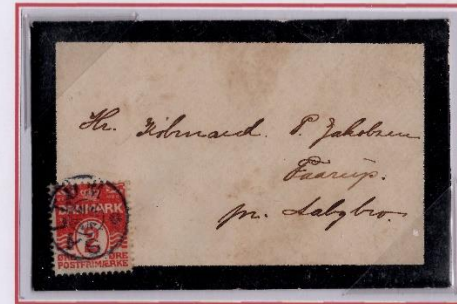 Hr. Købmand. P. Jakobsen
Faarup.
pr. Aabybro.
DANMARK
POSTFRIMÆRKE